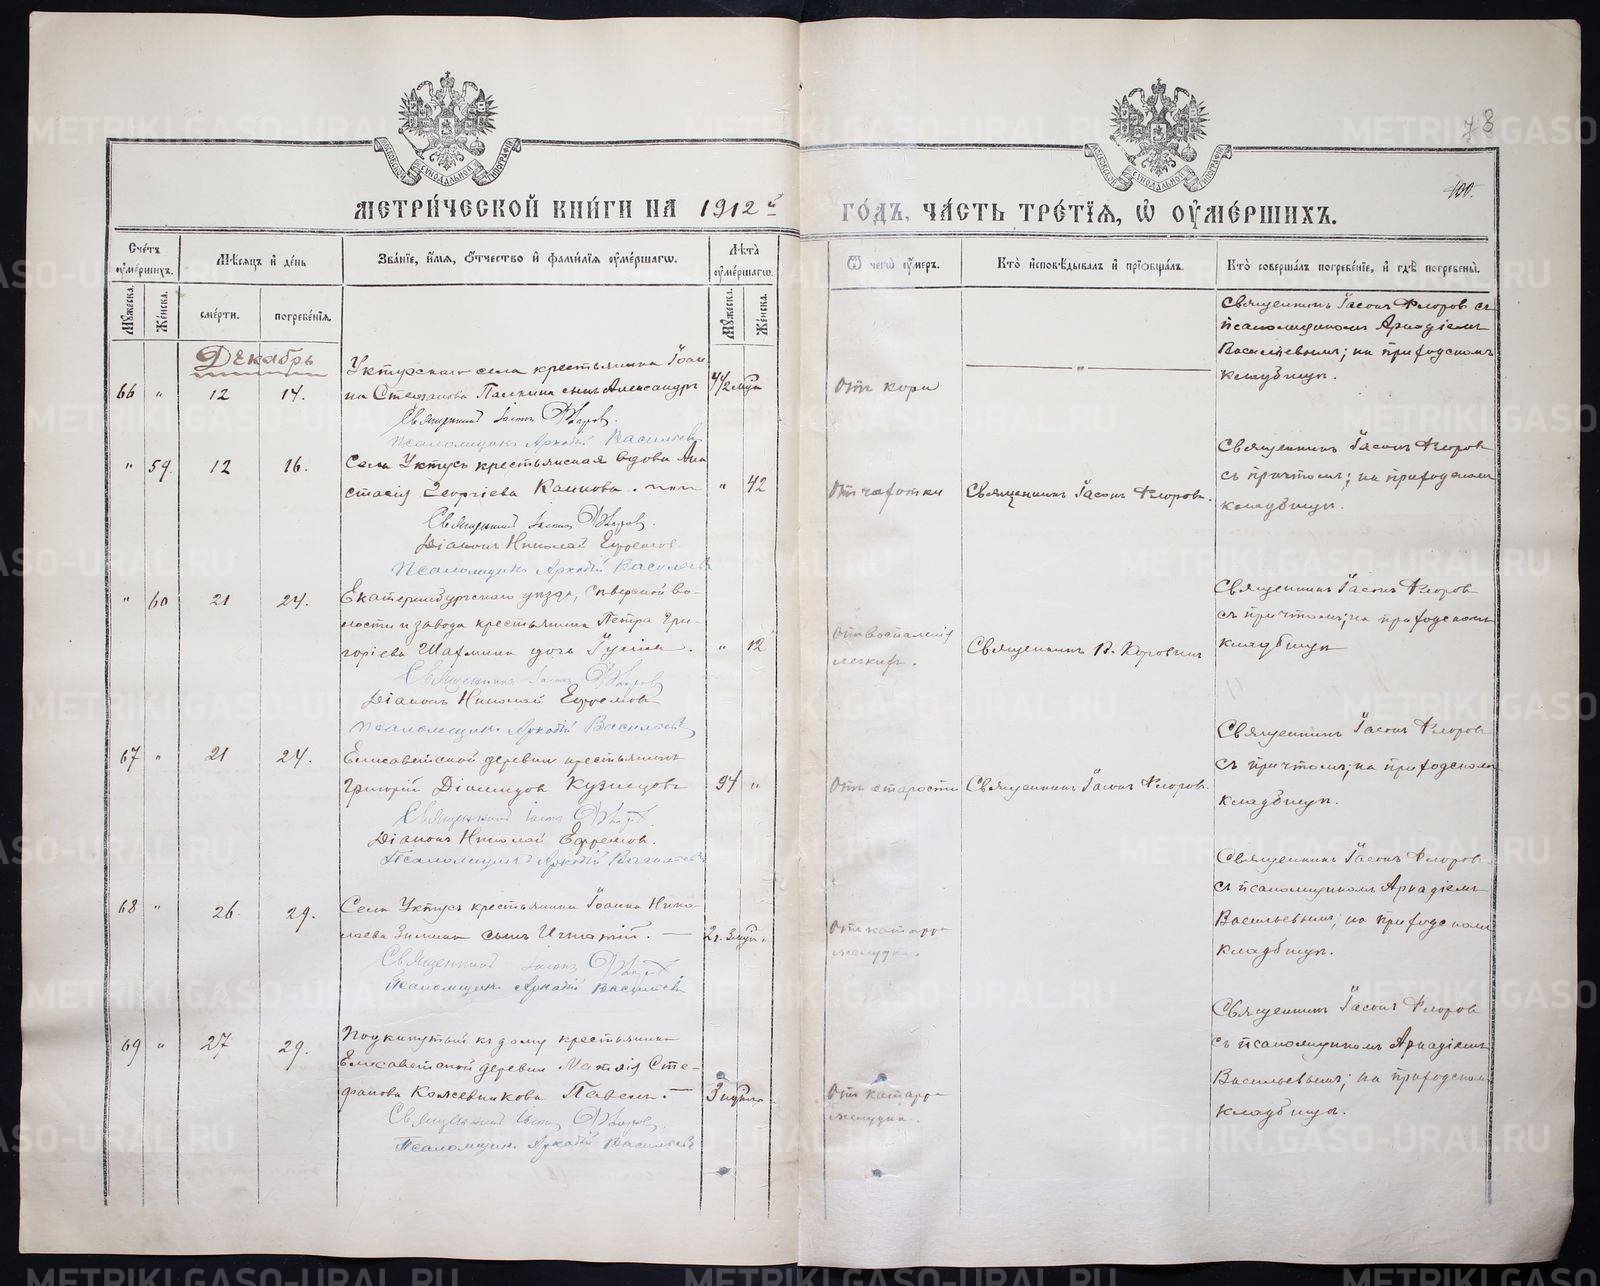 78
100.
МЕТРИ́ЧЕСКОЙ КНИ́ГИ НА 1912й ГО́ДЪ, ЧА́СТЬ ТРЕ́ТЇѦ, Ѡ҆ ОУ҆МЕ́РШИХЪ.
Сче́тъ оуме́ршихъ.
Мꙋжеска.
Же́нска.
Мѣ́сѧцъ и҆ де́нь
сме́рти.
погребе́нїѧ.
Зва́нїе, и҆́мѧ, ѻ҆́тчество и҆ фами́лїѧ оу҆ме́ршагѡ.
Лѣ́та оуме́ршагѡ.
Мꙋжеска.
Же́нска.
Ѿ чегѡ̀ оу҆́меръ.
Кто̀ и҆сповѣ́дывалъ и҆ прїѡбща́лъ.
Кто̀ соверша́лъ погребе́нїе, и҆ гдѣ̀ погребены̀.
Декабрь
66 " 12 14.
Уктусскаго села крестьянина Іоан
на Стефанова Палкина сынъ Александръ
Священникъ Іасонъ Флоровъ.
Псаломщикъ Аркадій Васильевъ
Отъ кори
"
Священникъ Іасонъ Флоровъ съ
псаломщикомъ Аркадіемъ
Васильевымъ; на приходскомъ
кладбищѣ.
" 59. 12 16.
Села Уктусъ крестьянская вдова Ана
стасія Георгіева
" 42
Священникъ Іасонъ Флоровъ.
Діаконъ Николай Ефремовъ
Псаломщикъ Аркадій Васильевъ
Отъ чахотки
Священникъ Іасонъ Флоровъ.
Священникъ Іасонъ Флоровъ
съ причтомъ; на приходскомъ
кладбищѣ.
" 60 21 24.
Екатеринбургскаго уѣзда, Сѣверской во-
лости и завода крестьянина Петра Гри-
горіева дочь
" 12
Священникъ Іасонъ Флоровъ
Діаконъ Николай Ефремовъ
Псаломщикъ Аркадій Васильевъ
Отъ воспаленія
легкихъ.
Священникъ В. Коровинъ
Священникъ Іасонъ Флоровъ
съ причтомъ; на приходскомъ
кладбищѣ
67 " 21 24.
Елисаветской деревни крестьянинъ
Григорій Діомидовъ Кузнецовъ
94 "
Священникъ Іасонъ Флоровъ.
Діаконъ Николай Ефремовъ.
Псаломщикъ Аркадій Васильевъ
Отъ старости
Священникъ Іасонъ Флоровъ.
Священникъ Іасонъ Флоровъ
съ причтомъ; на приходскомъ
кладбищѣ.
68 " 26. 29.
Села Уктусъ крестьянина Іоанна Нико-
лаева Зимина сынъ Игнатій. —
2г. 3 мѣс.
Священникъ Іасонъ Флоровъ
Псаломщикъ Аркадій Васильевъ
Отъ катарра
желудка.
Священникъ Іасонъ Флоровъ
съ псаломщикомъ Аркадіемъ
Васильевымъ; на приходскомъ
кладбищѣ.
69 " 27 29.
Подкинутый къ дому крестьянина
Елисаветской деревни Матѳія Сте-
фанова Кожевникова Павелъ. —
Священникъ Іасонъ Флоровъ
Псаломщикъ Аркадій Васильевъ
Отъ катарра
желудка.
Священникъ Іасонъ Флоровъ
съ псаломщикомъ Аркадіемъ
Васильевымъ; на приходскомъ
кладбищѣ.
METRIKI.GASO-URAL.RU